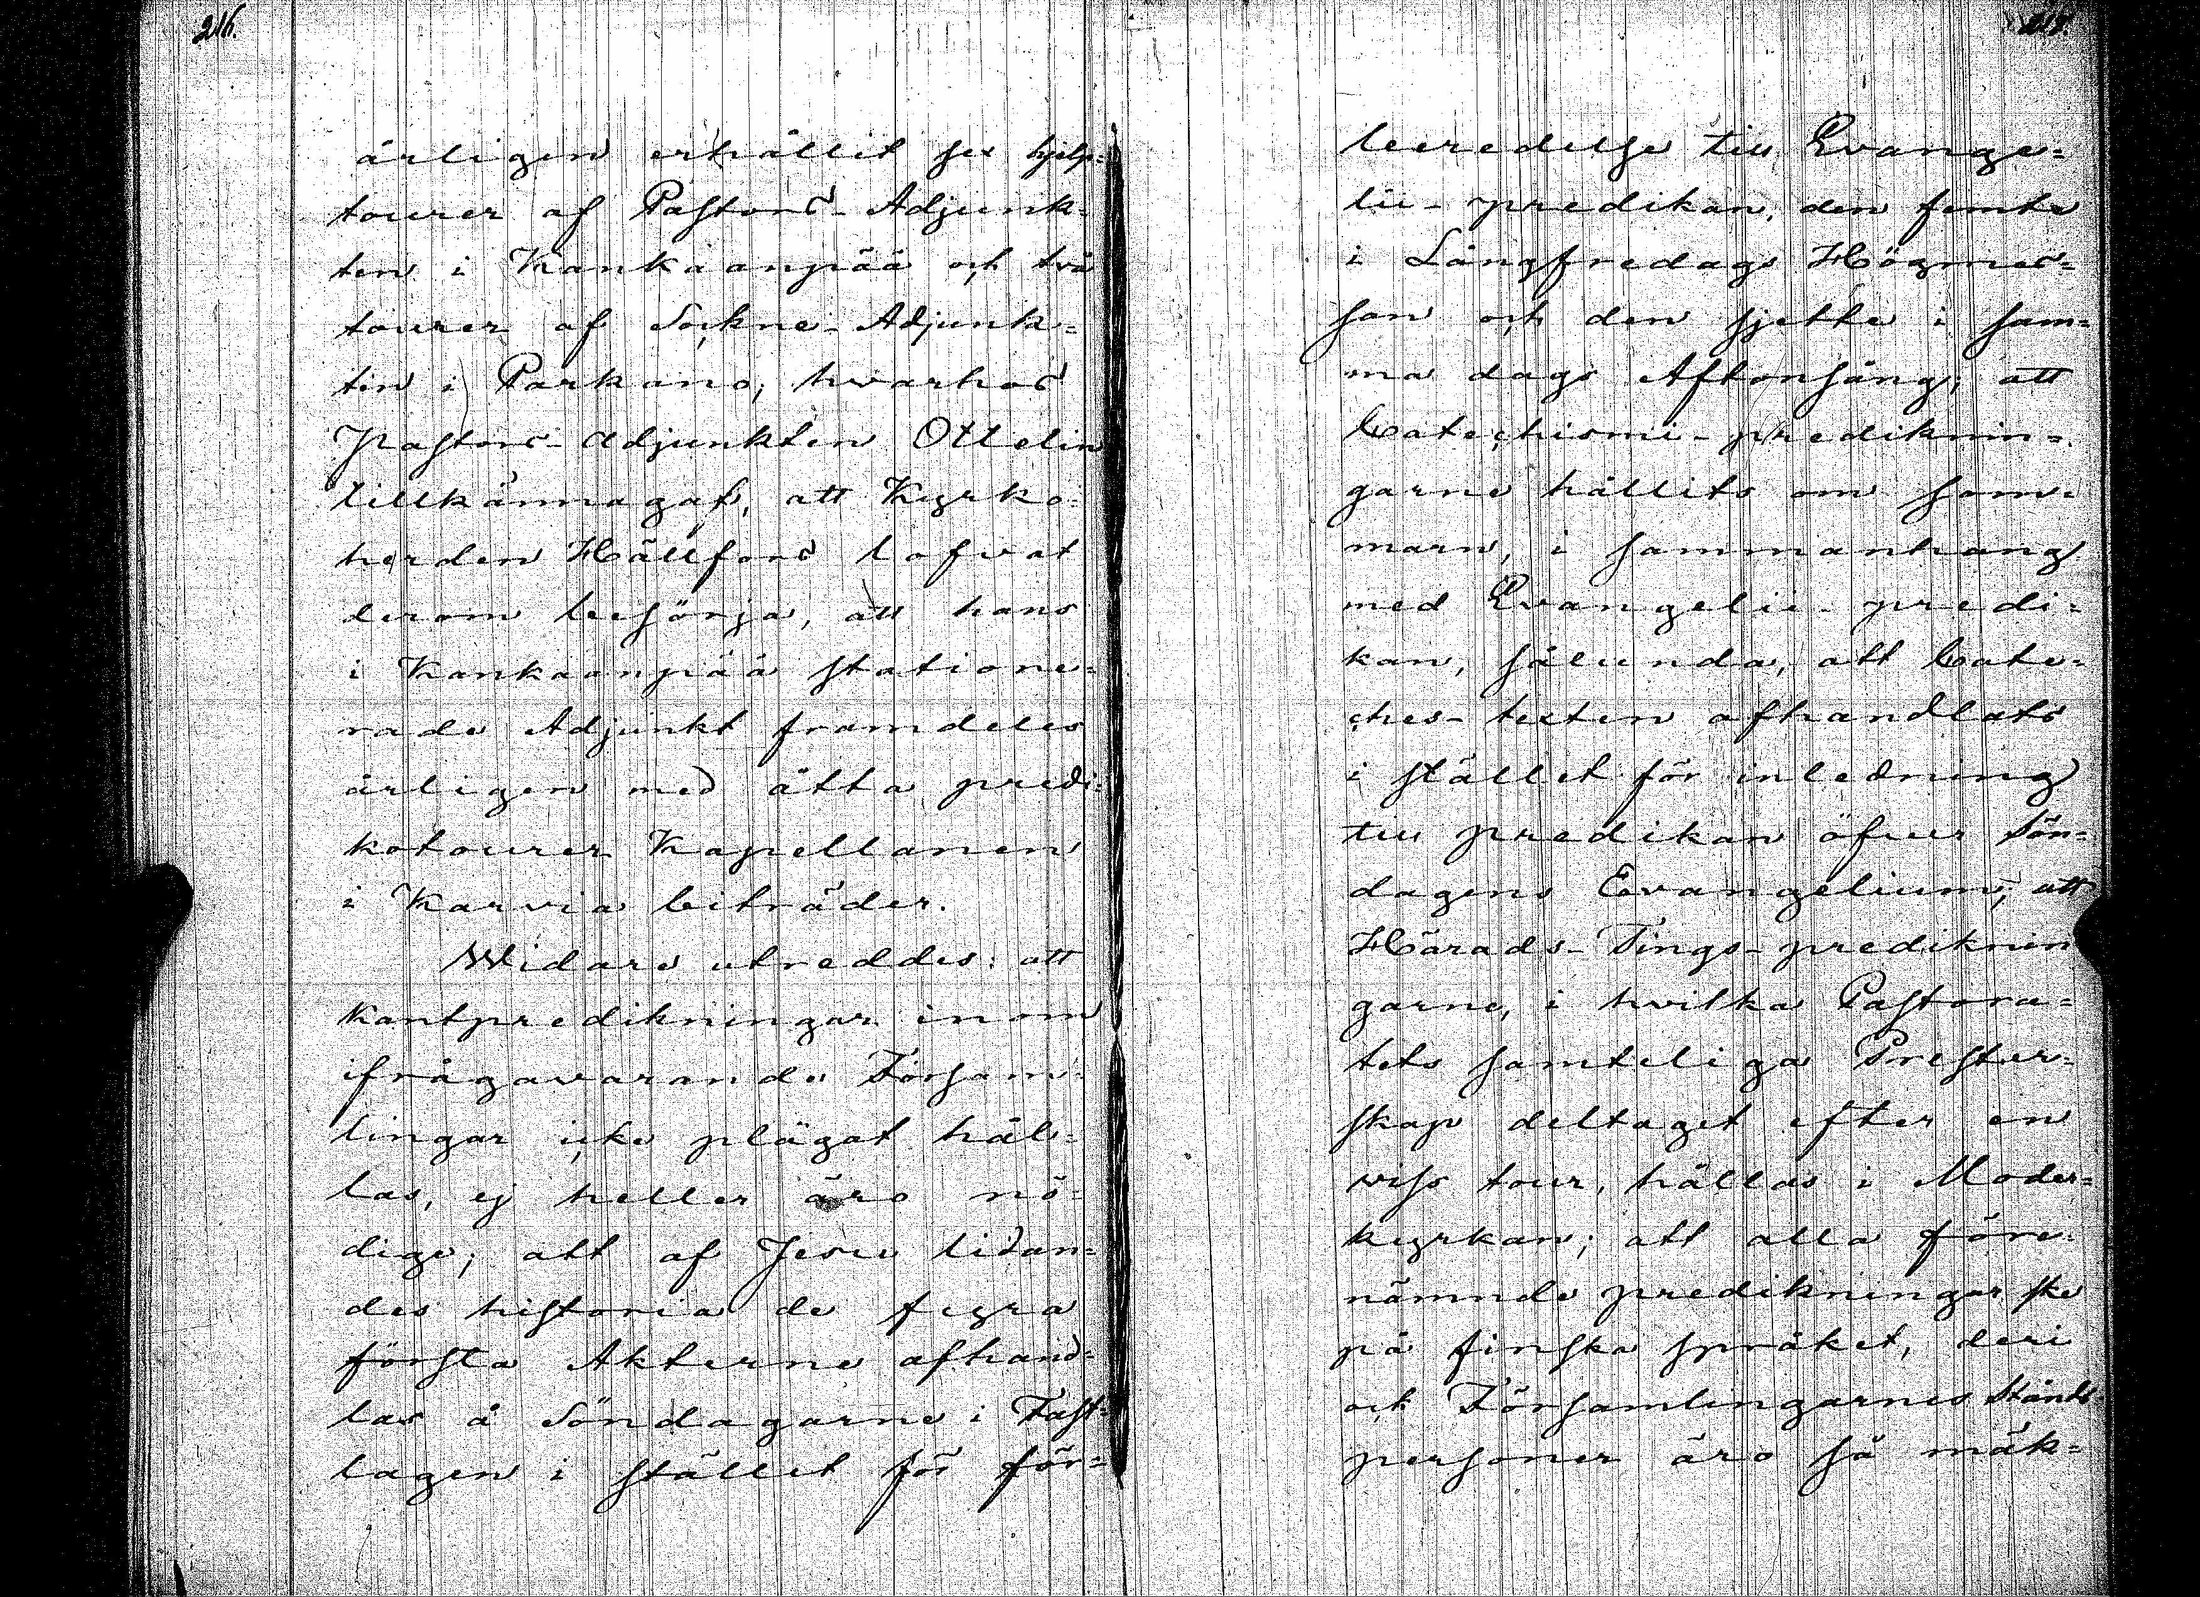 216.
årligen erhållit sex hjelp-
tourer af Pastors-Adjunk-
ten i Kankaanpää och två
tourer af Sockne-Adjunk-
ten i Parkano; hvarhos
Pastors-adjunkten Ottelin
tillkännagaf, att Kyrko-
herden Hällfors lofvat
derom besörja, att hans
i Kankaanpää statione-
rade Adjunkt framdeles
årligen med åtta predi-
kotourer Kapellanen
i Karvia biträder.
Widare utreddes: att
Kantpredikningar inom
ifrågavarande Försam-
lingar icke plägat hål-
las, ej heller äro nö-
dige; att af Jesu lidan-
des historia de fyra
första Akterne afhand-
las å Söndagarne i Fast-
lagen i stället för för-
beredelse till Evange-
lii-predikan, den femte
i Långfredags Högmes-
san och den sjette i sam-
ma dags Aftonsång; att
Catechismi-prediknin-
garne hållits om som-
marn, i sammanhang
med Evangelii-predi-
kan, sålunda, att Cate-
ches-texten afhandlats
i stället för inledning
till predikan öfver Sön-
dagens Evangelium; att
Härads-Tings-prediknin
garne, i hvilka Pastora-
tets samteliga Prester-
skap deltaget efter en
viss tour, hållas i Moder-
kyrkan; att alla före-
nämnde predikningar ske
på finska språket, deri
ock Församlingarnes Stånds-
personer äro så mäk-